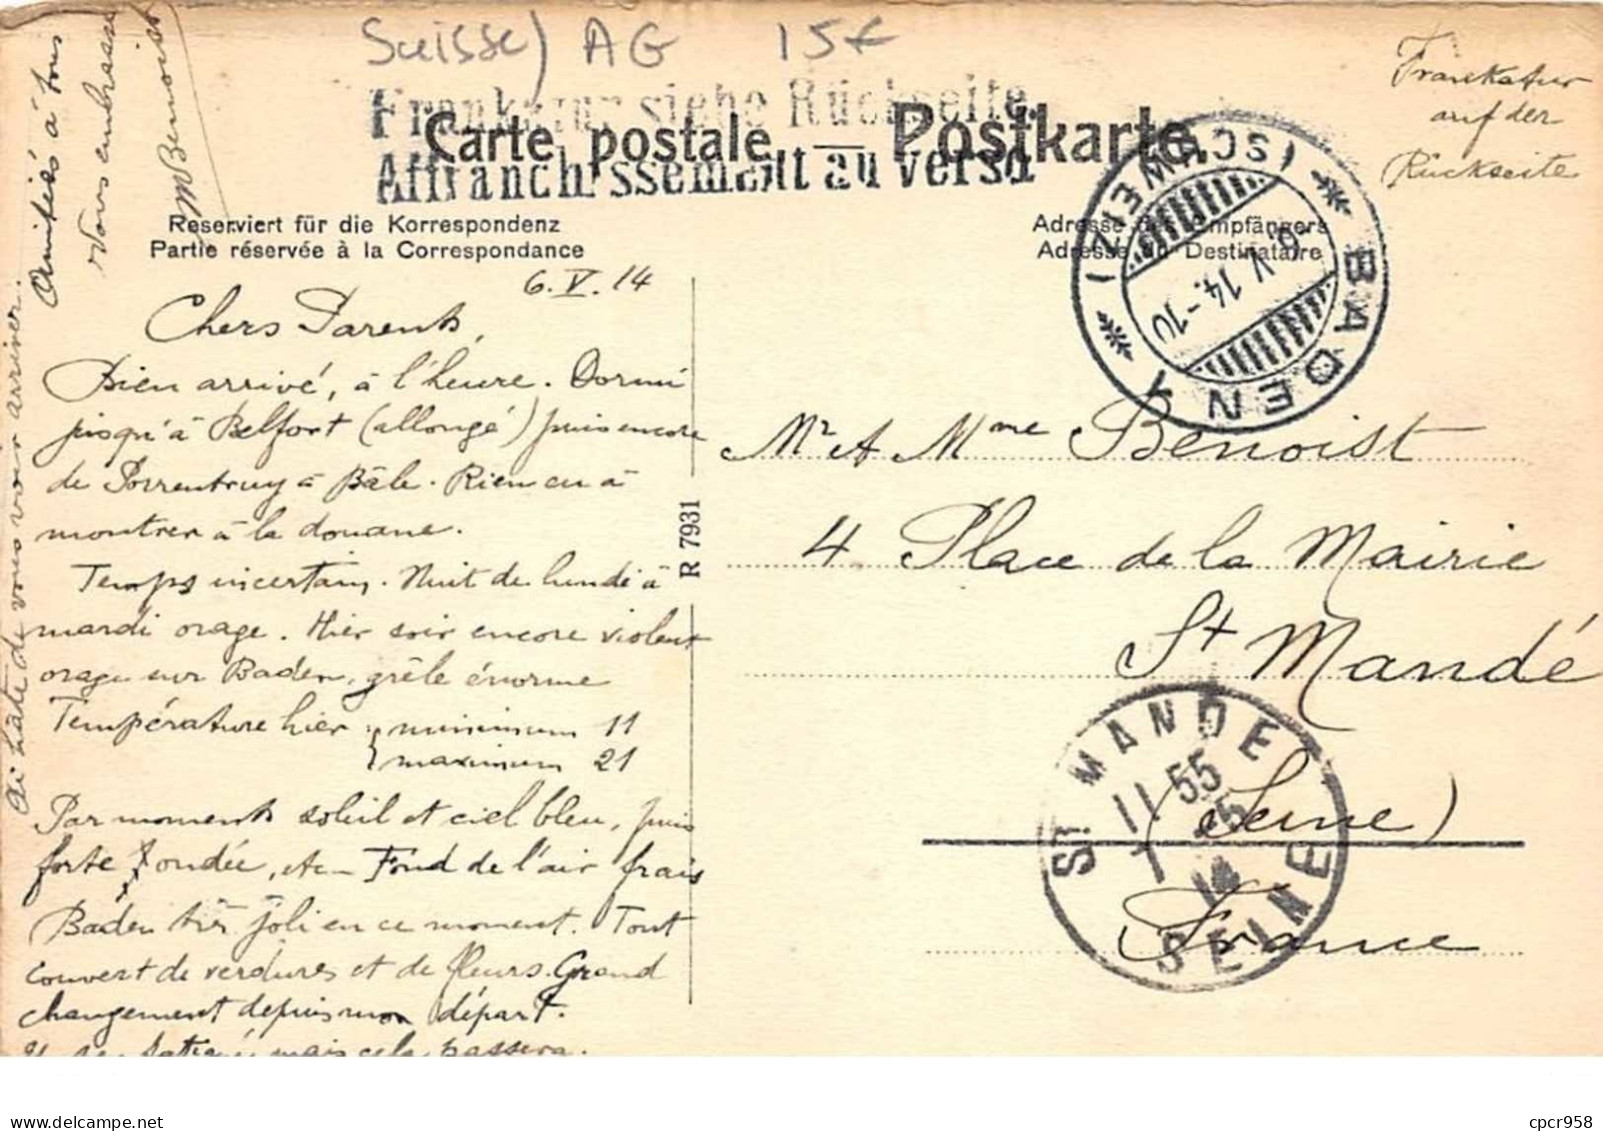 Suisse) AG 15€
Frankatur siehe Rückseite.
Affranchissement au verso.
Carte postale — Postkarte.
Frankatur
auf der
Rückseite
Reserviert für die Korrespondenz
Partie réservée à la Correspondance
Adresse des Empfängers
Adresse du Destinataire
BADEN
(SCHWEIZ)
6. V. 14.-10
6.V.14
Chers Parents,
Bien arrivé, à l'heure. Dormi
jusqu'à Belfort (allongé) puis encore
de Porrentruy à Bâle. Rien eu à
montrer à la douane.
Temps incertain. Nuit de lundi à
mardi orage. Hier soir encore violent
orage sur Baden, grêle énorme
Température hier { minimum 11
maximum 21
Par moments soleil et ciel bleu, puis
forte ondée, etc Fond de l'air frais
Baden très joli en ce moment. Tout
couvert de verdures et de fleurs. Grand
changement depuis mon départ.
mais cela passera.
Ai hâte de vous voir arriver.
Amitiés à tous
Vous embrasse
MBenoist
R 7931
Mr & Mme Benoist
4 Place de la Mairie
St Mandé
(Seine)
France
ST MANDE
11 55
7 - 5
14
SEINE
cpcr958